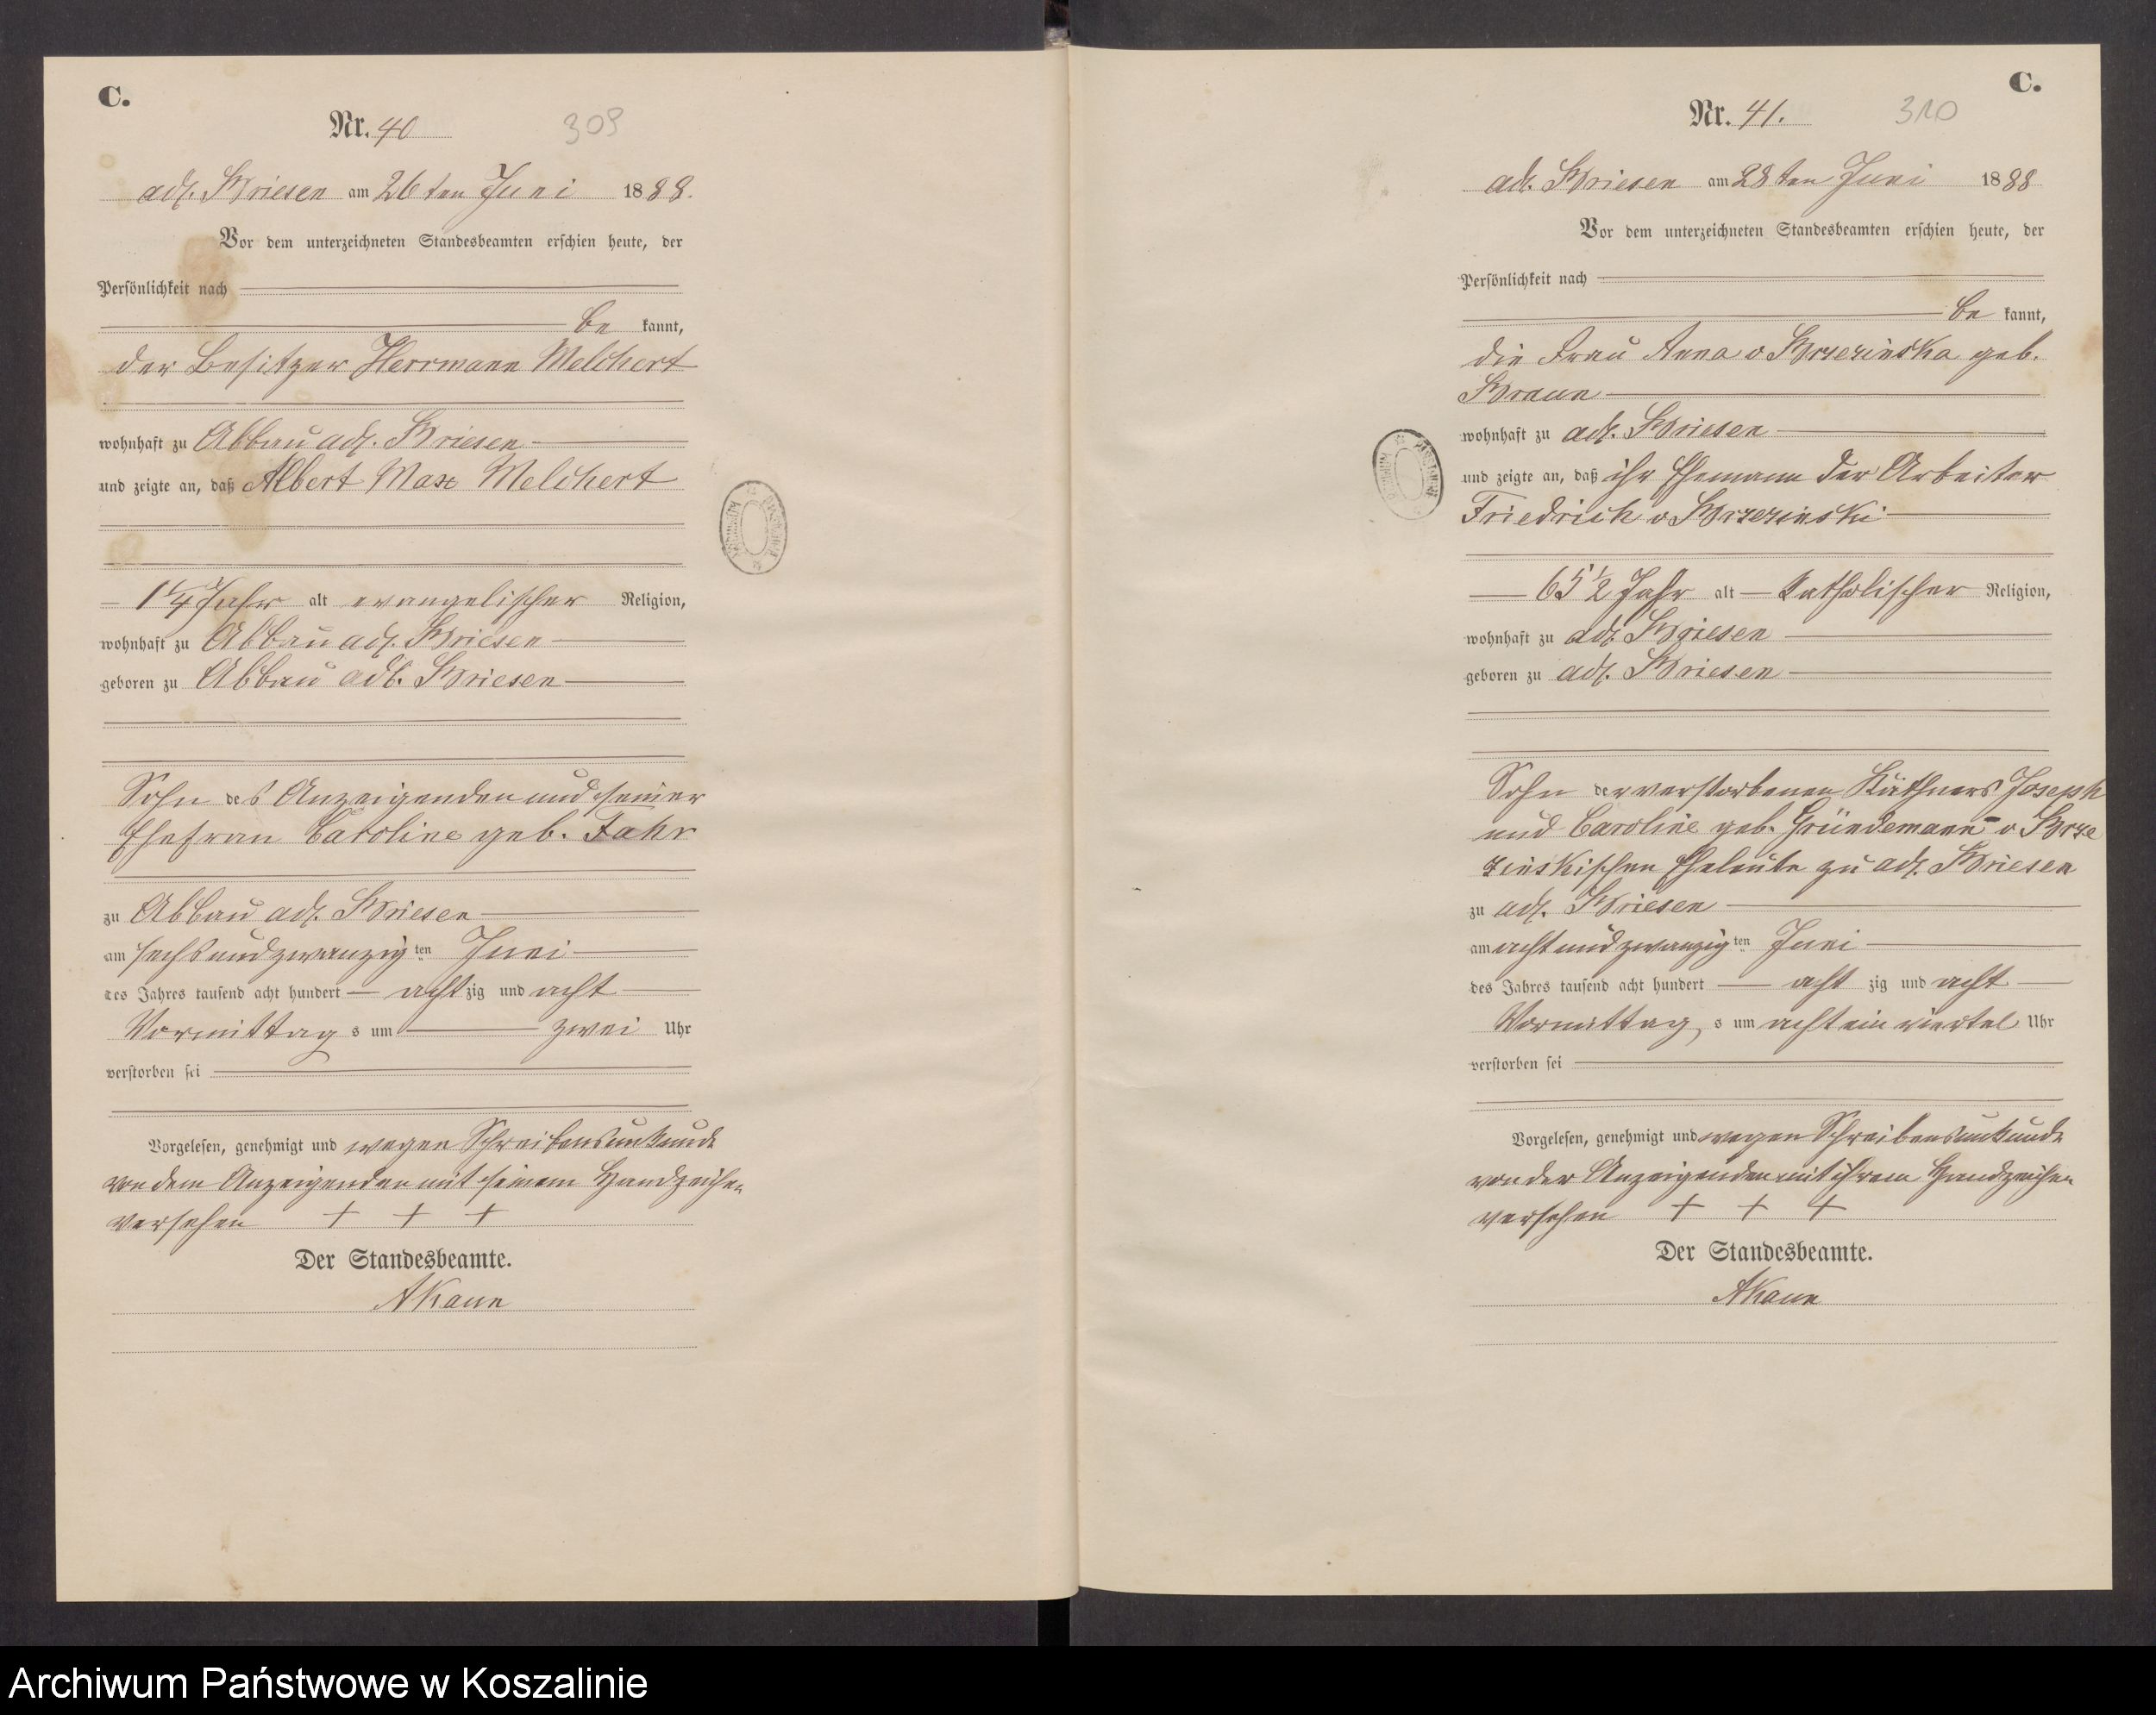 C.
Nr. 40
309
adl. Briesen am 26ten Juni 1888.
Vor dem unterzeichneten Standesbeamten erschien heute, der
Persönlichkeit nach
be kannt,
der Besitzer Herrmann Melchert
wohnhaft zu Abbau adl. Briesen
und zeigte an, daß Albert Max Melchert
1 1/4 Jahr alt evangelischer Religion,
wohnhaft zu Abbau adl. Briesen
geboren zu Abbau adl. Briesen
Sohn des Anzeigenden und seiner
Ehefrau Caroline geb. Fahr
zu Abbau adl. Briesen
am sechsundzwanzigten Juni
des Jahres tausend acht hundert achtzig und acht
Vormittags um zwei Uhr
verstorben sei
Vorgelesen, genehmigt und wegen Schreibensunkunde
von dem Anzeigenden mit seinem Handzeichen
versehen + + +
Der Standesbeamte.
AKaun
C.
Nr. 41.
310
adl. Briesen am 28ten Juni 1888
Vor dem unterzeichneten Standesbeamten erschien heute, der
Persönlichkeit nach
be kannt,
die Frau Anna v Brzezinska geb.
Braun
wohnhaft zu adl. Briesen
und zeigte an, daß ihr Ehemann der Arbeiter
Friedrich v Brzezinski
65 1/2 Jahr alt katholischer Religion,
wohnhaft zu adl. Briesen
geboren zu adl. Briesen
Sohn der verstorbenen Käthners Joseph
und Caroline geb. Gründemann v Brze
zinskischen Eheleute zu adl. Briesen
zu adl. Briesen
am achtundzwanzigten Juni
des Jahres tausend acht hundert acht zig und acht
Vormittags um acht ein viertel Uhr
verstorben sei
Vorgelesen, genehmigt und wegen Schreibensunkunde
von der Anzeigenden mit ihrem Handzeichen
versehen + + +
Der Standesbeamte.
AKaun
Archiwum Państwowe w Koszalinie